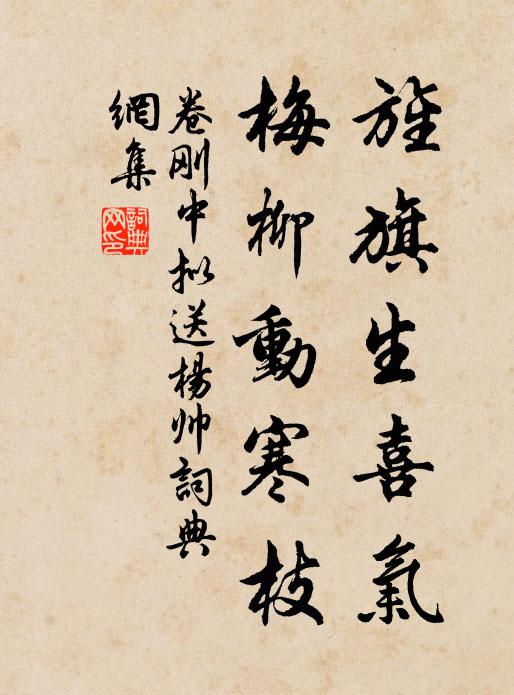 旌旗生喜氣
梅柳動寒枝
卷剛中拟送楊帅詞典
網集
詞典
网印